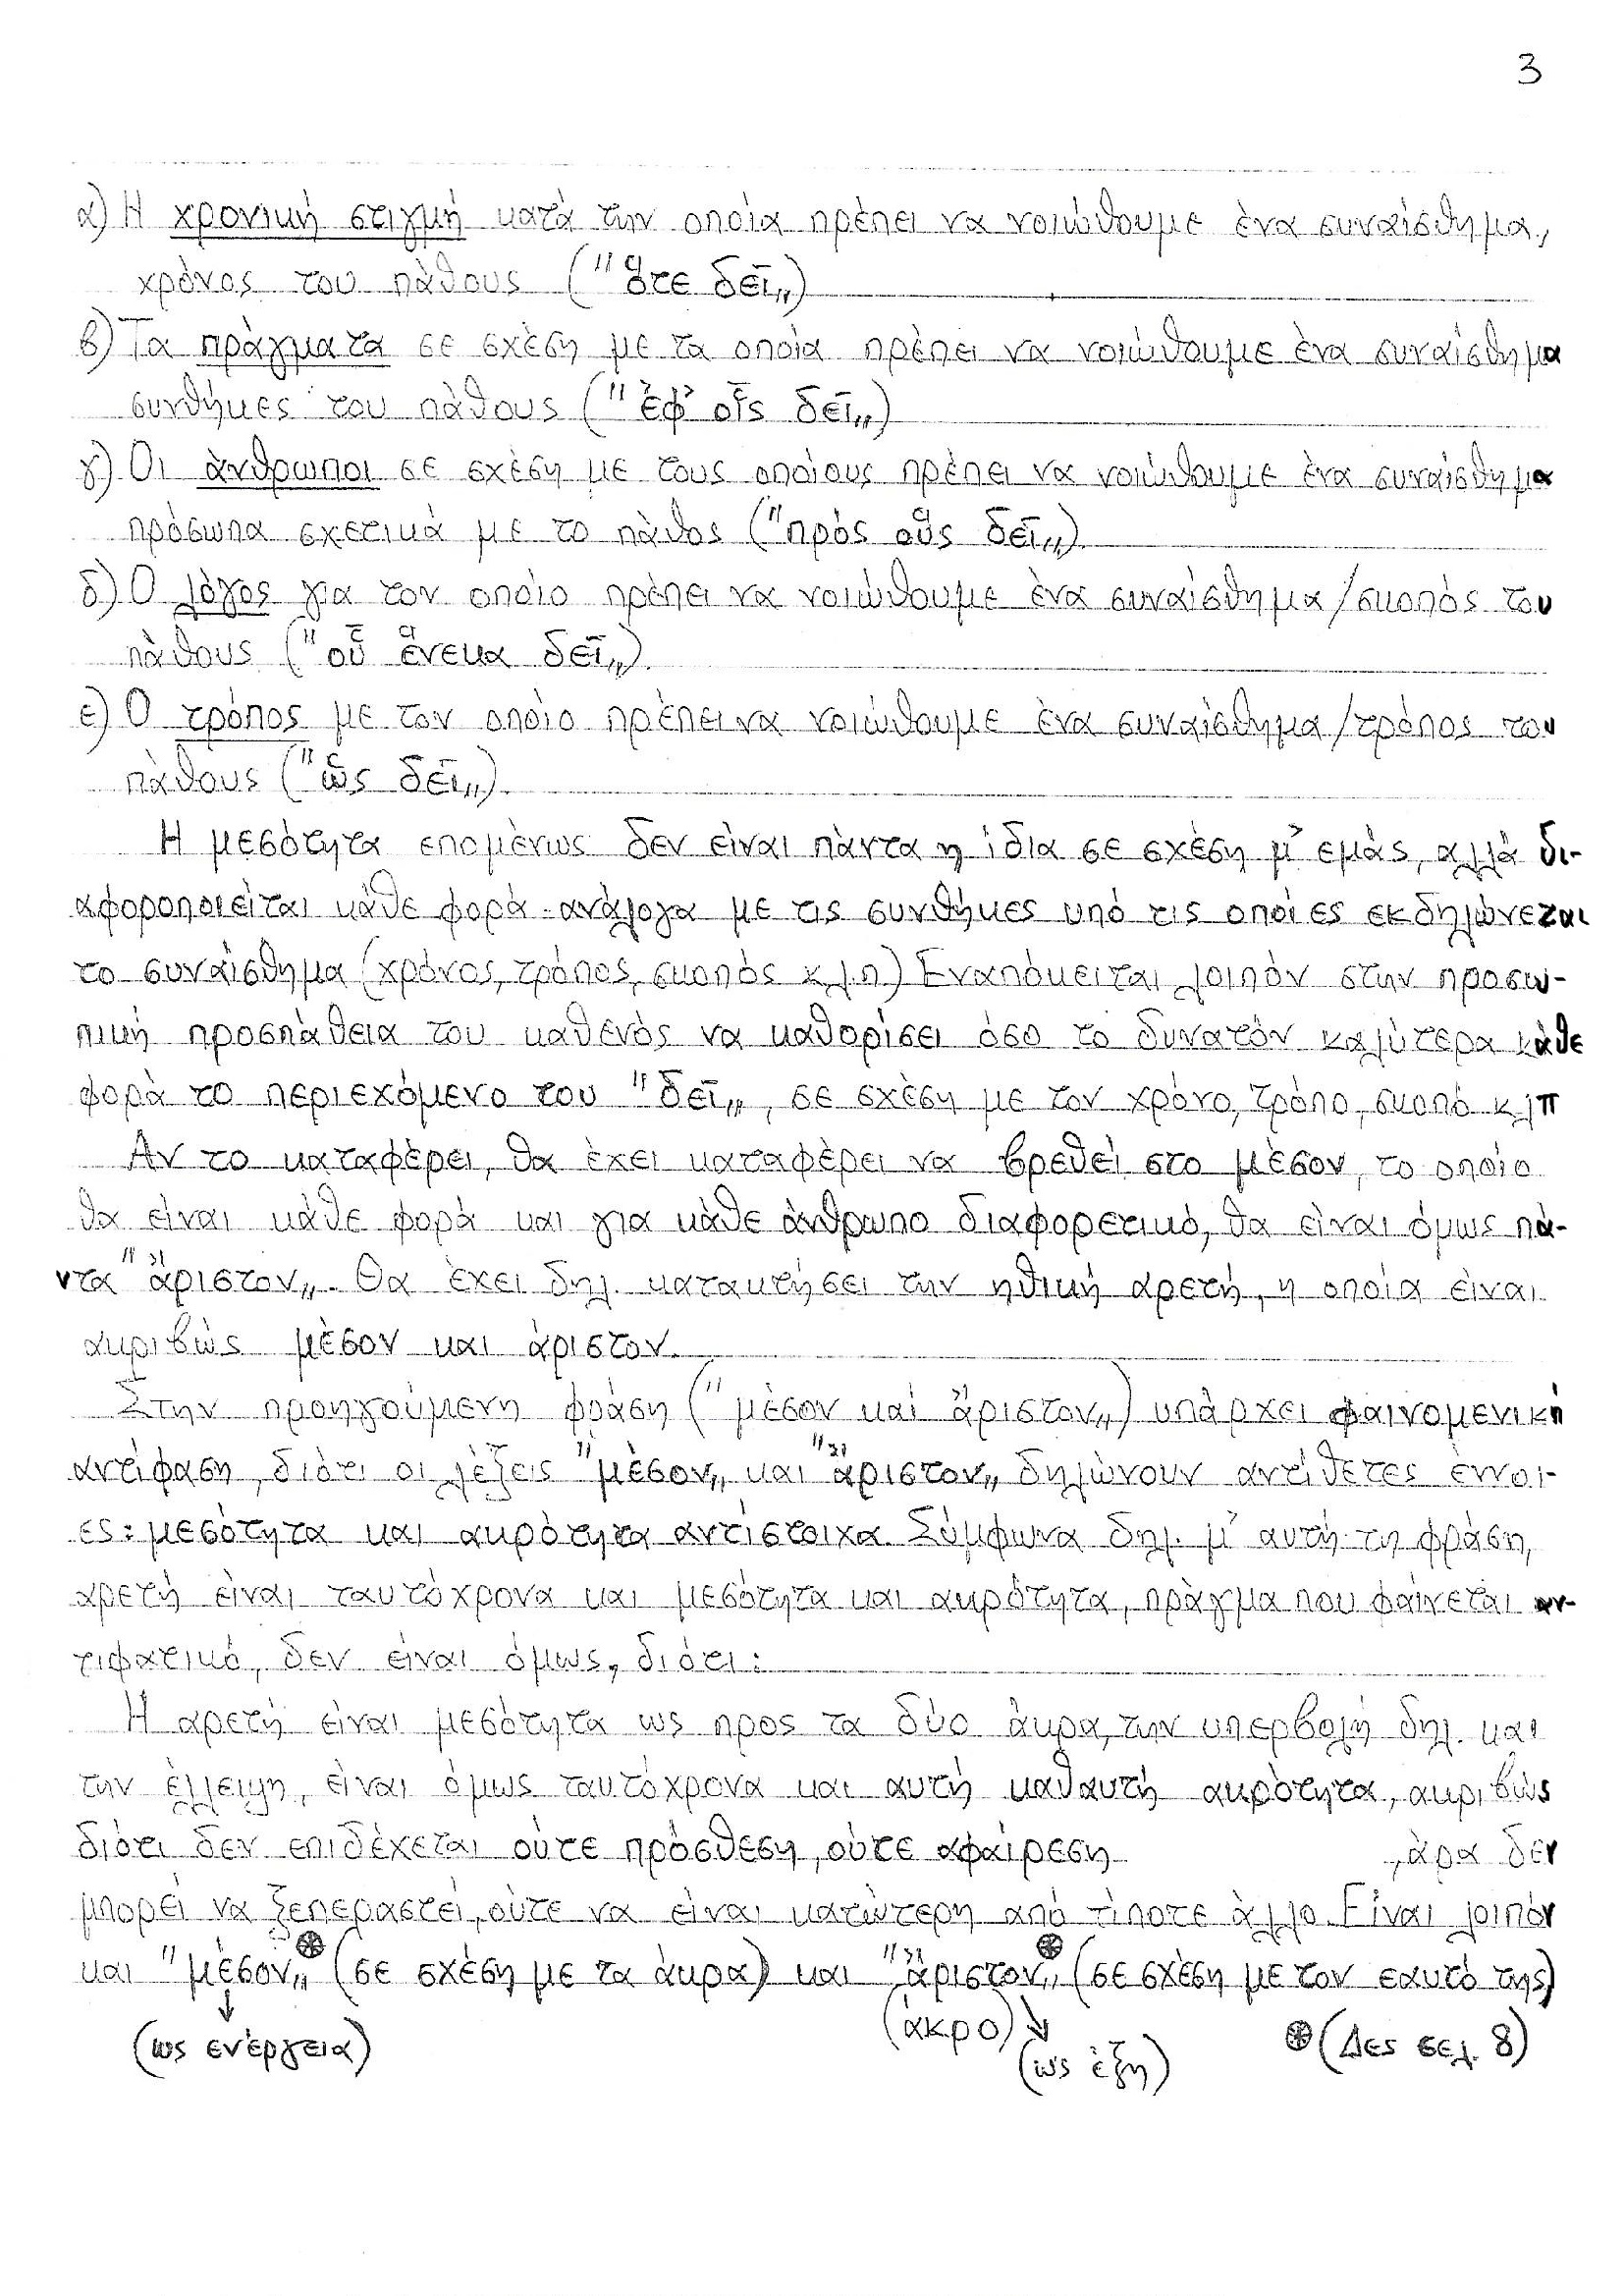 3
α) Η χρονική στιγμή κατά την οποία πρέπει να νοιώθουμε ένα συναίσθημα,
χρόνος του πάθους ("ὅτε δεῖ„)
β) Τα πράγματα σε σχέση με τα οποία πρέπει να νοιώθουμε ένα συναίσθημα
συνθήκες του πάθους ("ἐφ' οἷς δεῖ„)
γ) Οι άνθρωποι σε σχέση με τους οποίους πρέπει να νοιώθουμε ένα συναίσθημα
πρόσωπα σχετικά με το πάθος ("πρός οὕς δεῖ„)
δ) Ο λόγος για τον οποίο πρέπει να νοιώθουμε ένα συναίσθημα/σκοπός του
πάθους ("οὗ ἕνεκα δεῖ„).
ε) Ο τρόπος με τον οποίο πρέπει να νοιώθουμε ένα συναίσθημα/τρόπος του
πάθους ("ὡς δεῖ„).
Η μεσότητα επομένως δεν είναι πάντα η ίδια σε σχέση μ' εμάς, αλλά δι-
αφοροποιείται κάθε φορά ανάλογα με τις συνθήκες υπό τις οποίες εκδηλώνεται
το συναίσθημα (χρόνος, τρόπος, σκοπός κ.λ.π) Εναπόκειται λοιπόν στην προσω-
πική προσπάθεια του καθενός να καθορίσει όσο το δυνατόν καλύτερα κάθε
φορά το περιεχόμενο του "δεῖ„, σε σχέση με τον χρόνο, τρόπο, σκοπό κλπ
Αν το καταφέρει, θα έχει καταφέρει να βρεθεί στο μέσον, το οποίο
θα είναι κάθε φορά και για κάθε άνθρωπο διαφορετικό, θα είναι όμως πά-
ντα "ἄριστον„. Θα έχει δηλ. κατακτήσει την ηθική αρετή, η οποία είναι
ακριβώς μέσον και άριστον.
Στην προηγούμενη φράση ("μέσον καί ἄριστον„) υπάρχει φαινομενική
αντίφαση, διότι οι λέξεις "μέσον„ και "ἄριστον„ δηλώνουν αντίθετες έννοι-
ες: μεσότητα και ακρότητα αντίστοιχα. Σύμφωνα δηλ. μ' αυτή τη φράση,
αρετή είναι ταυτόχρονα και μεσότητα και ακρότητα, πράγμα που φαίνεται αν-
τιφατικό, δεν είναι όμως, διότι:
Η αρετή είναι μεσότητα ως προς τα δύο άκρα, την υπερβολή δηλ. και
την έλλειψη, είναι όμως ταυτόχρονα και αυτή καθαυτή ακρότητα, ακριβώς
διότι δεν επιδέχεται ούτε πρόσθεση, ούτε αφαίρεση , άρα δεν
μπορεί να ξεπεραστεί, ούτε να είναι κατώτερη από τίποτε άλλο. Είναι λοιπόν
και "μέσον„ (σε σχέση με τα άκρα) και "ἄριστον„ (σε σχέση με τον εαυτό της)
(ως ενέργεια) (άκρο) (ως έξη) (Δες σελ. 8)